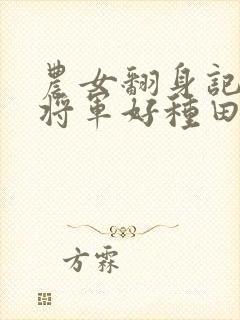 農女翻身記
將軍好種田
方霖